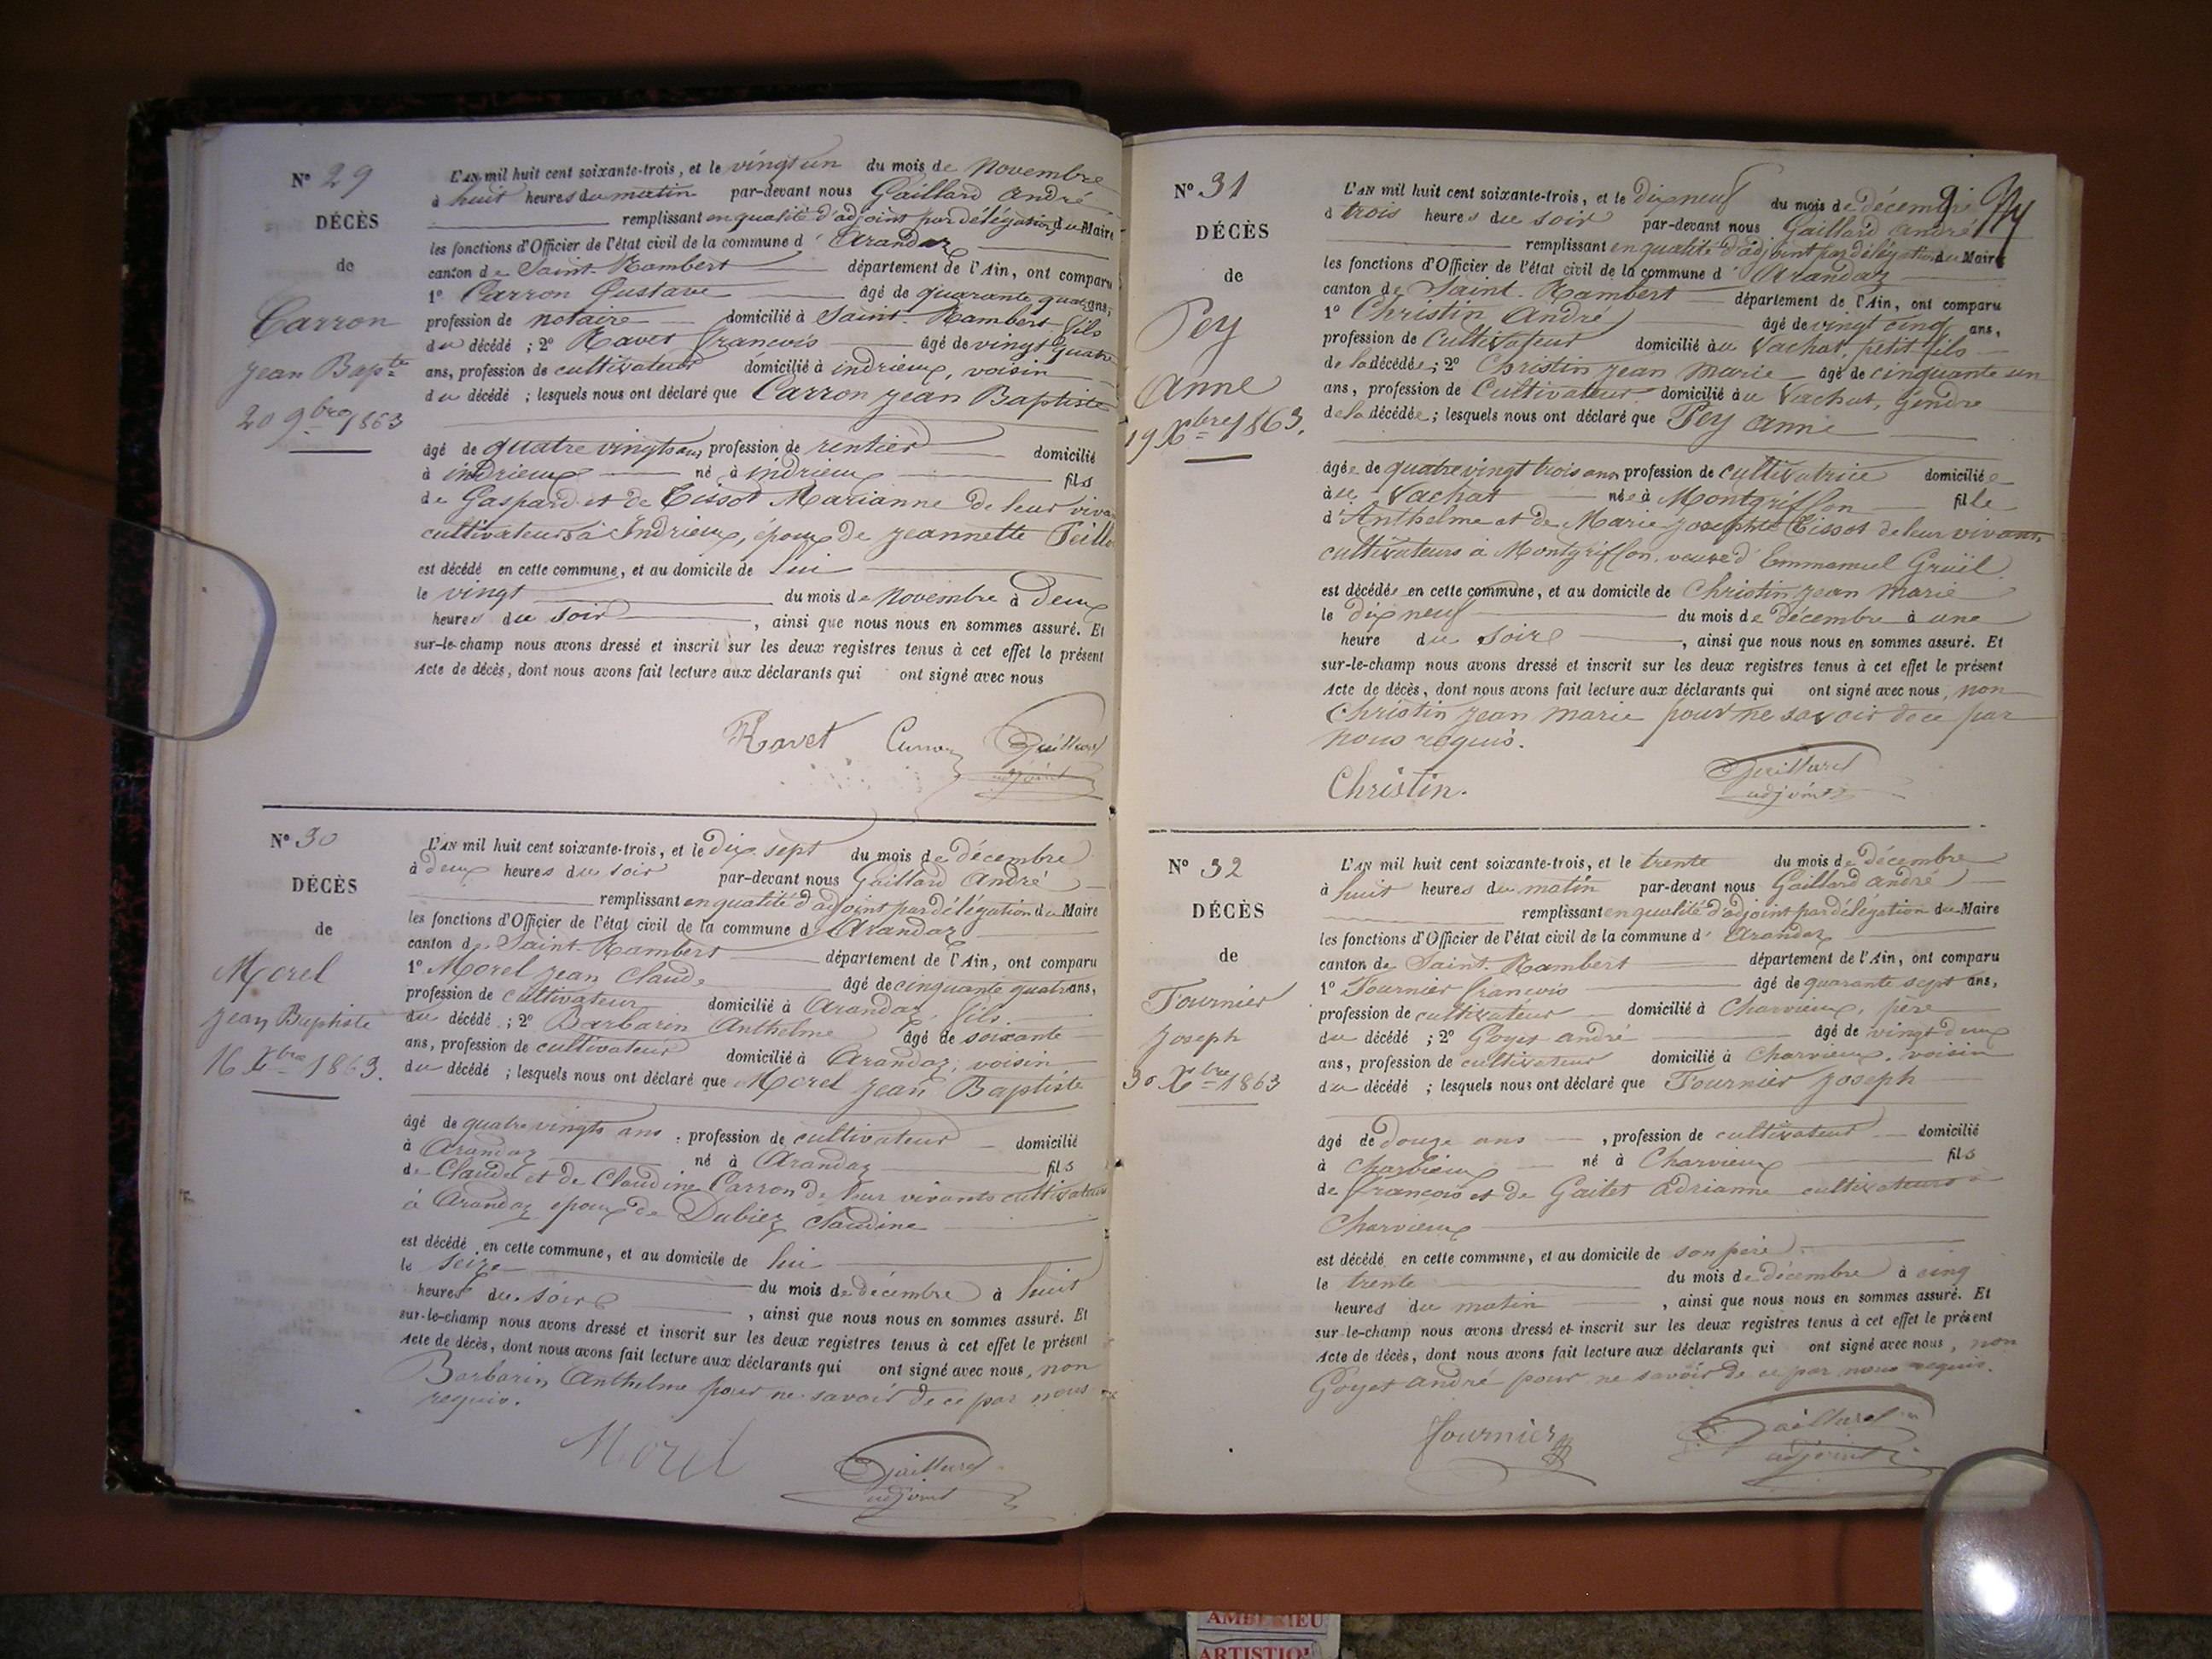 N° 29
DÉCÈS
de
Carron
Jean Bapte
20 9bre 1863
L'AN mil huit cent soixante-trois, et le vingt un du mois de Novembre
à huit heures du matin par-devant nous Gaillard André
remplissant en qualité d'adjoint par délégation du Maire
les fonctions d'Officier de l'état civil de la commune d' Arandaz
canton de Saint-Rambert département de l'Ain, ont comparu
1° Carron Gustave âgé de quarante quatre ans,
profession de notaire domicilié à Saint-Rambert fils
du décédé ; 2° Ravet françois âgé de vingt quatre
ans, profession de cultivateur domicilié à indrieux, voisin
du décédé ; lesquels nous ont déclaré que Carron Jean Baptiste
âgé de quatre vingts ans, profession de rentier domicilié
à indrieux né à indrieux fils
de Gaspard et de Tissot Marianne de leur vivant
cultivateurs à Indrieux, époux de Jeannette
est décédé en cette commune, et au domicile de lui
le vingt du mois de Novembre à deux
heures du soir , ainsi que nous nous en sommes assuré. Et
sur-le-champ nous avons dressé et inscrit sur les deux registres tenus à cet effet le présent
Acte de décès, dont nous avons fait lecture aux déclarants qui ont signé avec nous
Ravet Carron Gaillard
adjoint
N° 30
DÉCÈS
de
Morel
Jean Baptiste
16 Xbre 1863.
L'AN mil huit cent soixante-trois, et le Dix sept du mois de décembre
à deux heures du soir par-devant nous Gaillard André
remplissant en qualité d'adjoint par délégation du Maire
les fonctions d'Officier de l'état civil de la commune d' Arandaz
canton de Saint-Rambert département de l'Ain, ont comparu
1° Morel Jean Claude âgé de cinquante quatre ans,
profession de cultivateur domicilié à Arandaz, fils
du décédé ; 2° Barbarin Anthelme âgé de soixante
ans, profession de cultivateur domicilié à Arandaz, voisin
du décédé ; lesquels nous ont déclaré que Morel Jean Baptiste
âgé de quatre vingts ans , profession de cultivateur domicilié
à Arandaz né à Arandaz fils
de Claude et de Claudine Carron de leur vivants cultivateurs
à Arandaz époux de Dubiez Claudine
est décédé en cette commune, et au domicile de lui
le seize du mois de décembre à huit
heures du soir , ainsi que nous nous en sommes assuré. Et
sur-le-champ nous avons dressé et inscrit sur les deux registres tenus à cet effet le présent
Acte de décès, dont nous avons fait lecture aux déclarants qui ont signé avec nous, non
Barbarin Anthelme pour ne savoir de ce par nous
requis.
Morel Gaillard
adjoint
N° 31
DÉCÈS
de
Pey
Anne
19 Xbre 1863.
L'AN mil huit cent soixante-trois, et le Dix neuf du mois de décembre
à trois heures du soir par-devant nous Gaillard André
remplissant en qualité d'adjoint par délégation du Maire
les fonctions d'Officier de l'état civil de la commune d' Arandaz
canton de Saint-Rambert département de l'Ain, ont comparu
1° Christin André âgé de vingt cinq ans,
profession de Cultivateur domicilié au Vachat, petit fils
de la décédée ; 2° Christin Jean Marie âgé de cinquante un
ans, profession de Cultivateur domicilié au Vachat, gendre
de la décédée ; lesquels nous ont déclaré que Pey Anne
âgée de quatre vingt trois ans profession de cultivatrice domiciliée
au Vachat née à Montgriffon fille
d'Anthelme et de Marie Josephte Tissot de leur vivant
cultivateurs à Montgriffon, veuve d'Emmanuel Gruel.
est décédée en cette commune, et au domicile de Christin Jean Marie
le Dix neuf du mois de décembre à une
heure du soir , ainsi que nous nous en sommes assuré. Et
sur-le-champ nous avons dressé et inscrit sur les deux registres tenus à cet effet le présent
Acte de décès, dont nous avons fait lecture aux déclarants qui ont signé avec nous, non
Christin Jean Marie pour ne savoir de ce par
nous requis.
Christin. Gaillard
adjoint
N° 32
DÉCÈS
de
Fournier
Joseph
30 Xbre 1863
L'AN mil huit cent soixante-trois, et le trente du mois de Décembre
à huit heures du matin par-devant nous Gaillard André
remplissant en qualité d'adjoint par délégation du Maire
les fonctions d'Officier de l'état civil de la commune d' Arandaz
canton de Saint-Rambert département de l'Ain, ont comparu
1° Fournier françois âgé de quarante sept ans,
profession de cultivateur domicilié à Charvieux, père
du décédé ; 2° Goyet André âgé de vingt deux
ans, profession de cultivateur domicilié à Charvieux, voisin
du décédé ; lesquels nous ont déclaré que Fournier Joseph
âgé de douze ans , profession de cultivateur domicilié
à Charvieux né à Charvieux fils
de françois et de Gaitet Adrianne cultivateurs à
Charvieux
est décédé en cette commune, et au domicile de son père
le trente du mois de décembre à cinq
heures du matin , ainsi que nous nous en sommes assuré. Et
sur-le-champ nous avons dressé et inscrit sur les deux registres tenus à cet effet le présent
Acte de décès, dont nous avons fait lecture aux déclarants qui ont signé avec nous, non
Goyet André pour ne savoir de ce par nous requis.
fournier Gaillard
adjoint
AMBERIEU
ARTISTIQU